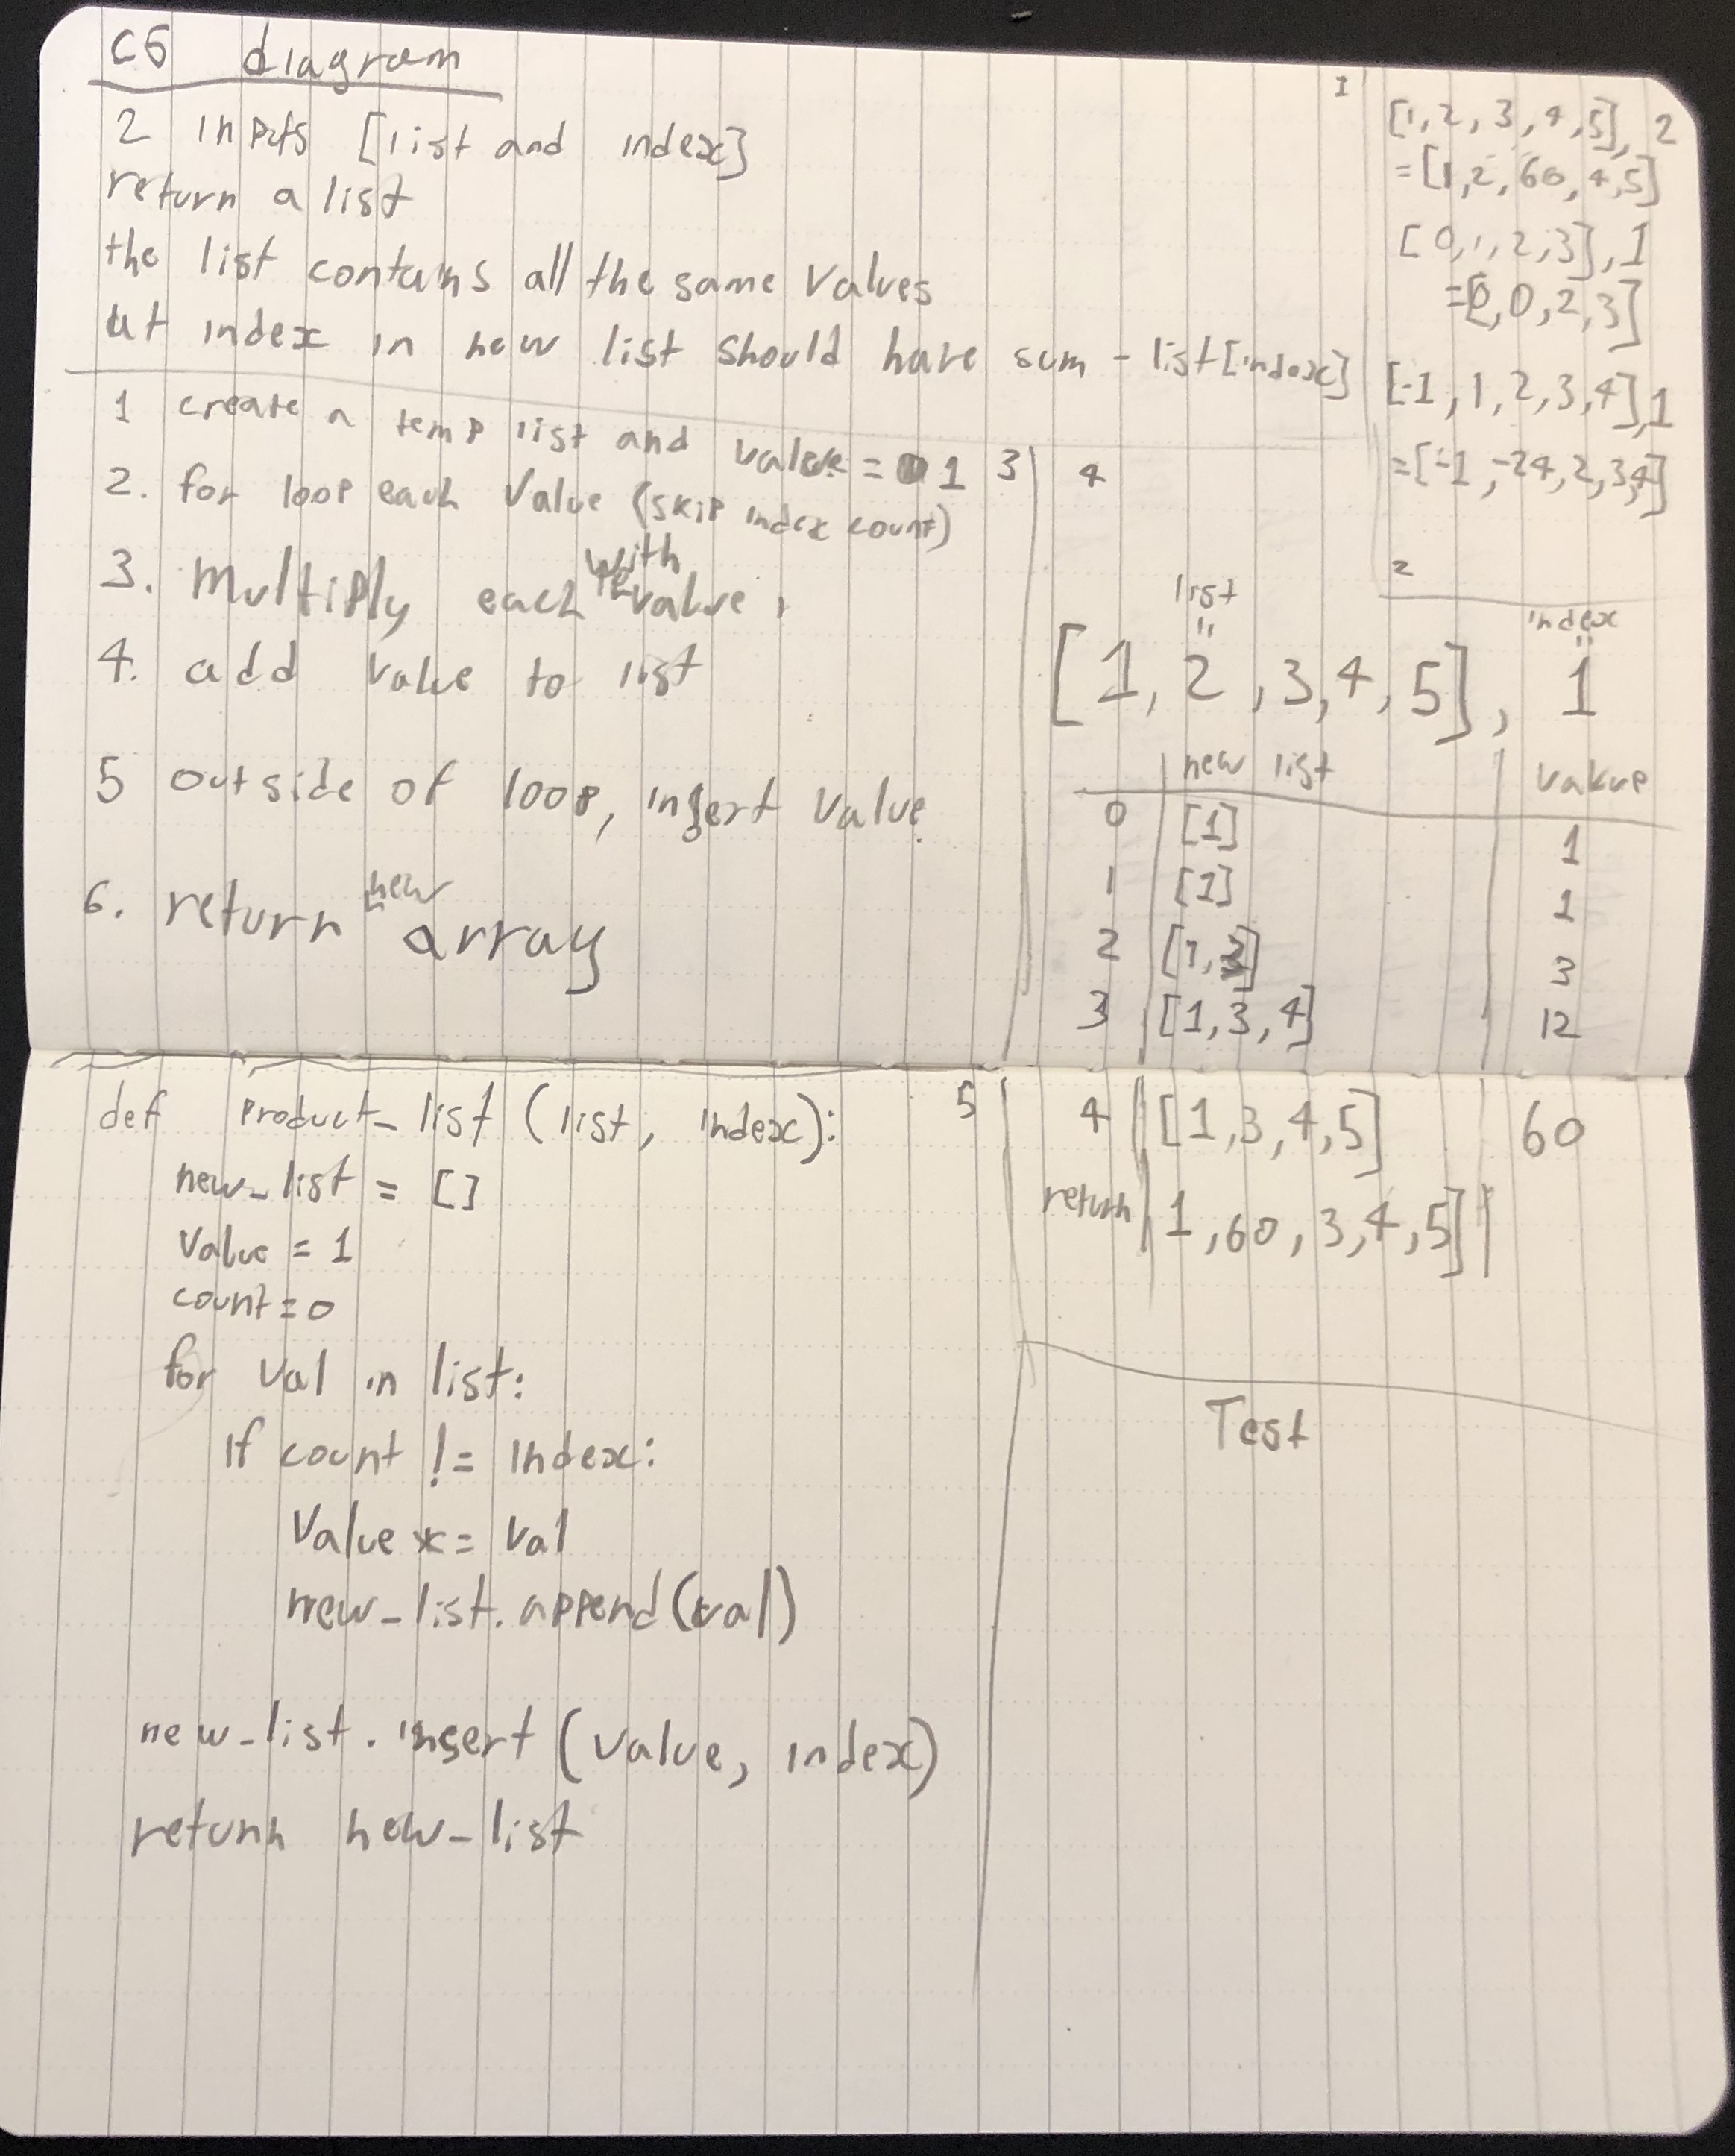 C5 diagram
2 inputs [list and index]
return a list
the list contains all the same values
at index in new list should have sum - list[index]
1
[1,2,3,4,5], 2
=[1,2,60,4,5]
[0,1,2,3],1
=[0,0,2,3]
[-1,1,2,3,4],1
=[-1,-24,2,3,4]
2
1 create a temp list and value = 1 3
2. for loop each value (skip index count)
3. Multiply each with value.
4. add value to list
5 outside of loop, insert value
6. return new array
4
list index
" "
[1, 2, 3, 4, 5], 1
new list value
0 [1] 1
1 [1] 1
2 [1,3] 3
3 [1,3,4] 12
4 [1,3,4,5] 60
return 1,60,3,4,5]
Test
def product_list (list, index): 5
new_list = []
value = 1
count=0
for val in list:
if count != index:
value *= val
new_list.append(val)
new_list.insert(value, index)
return new_list